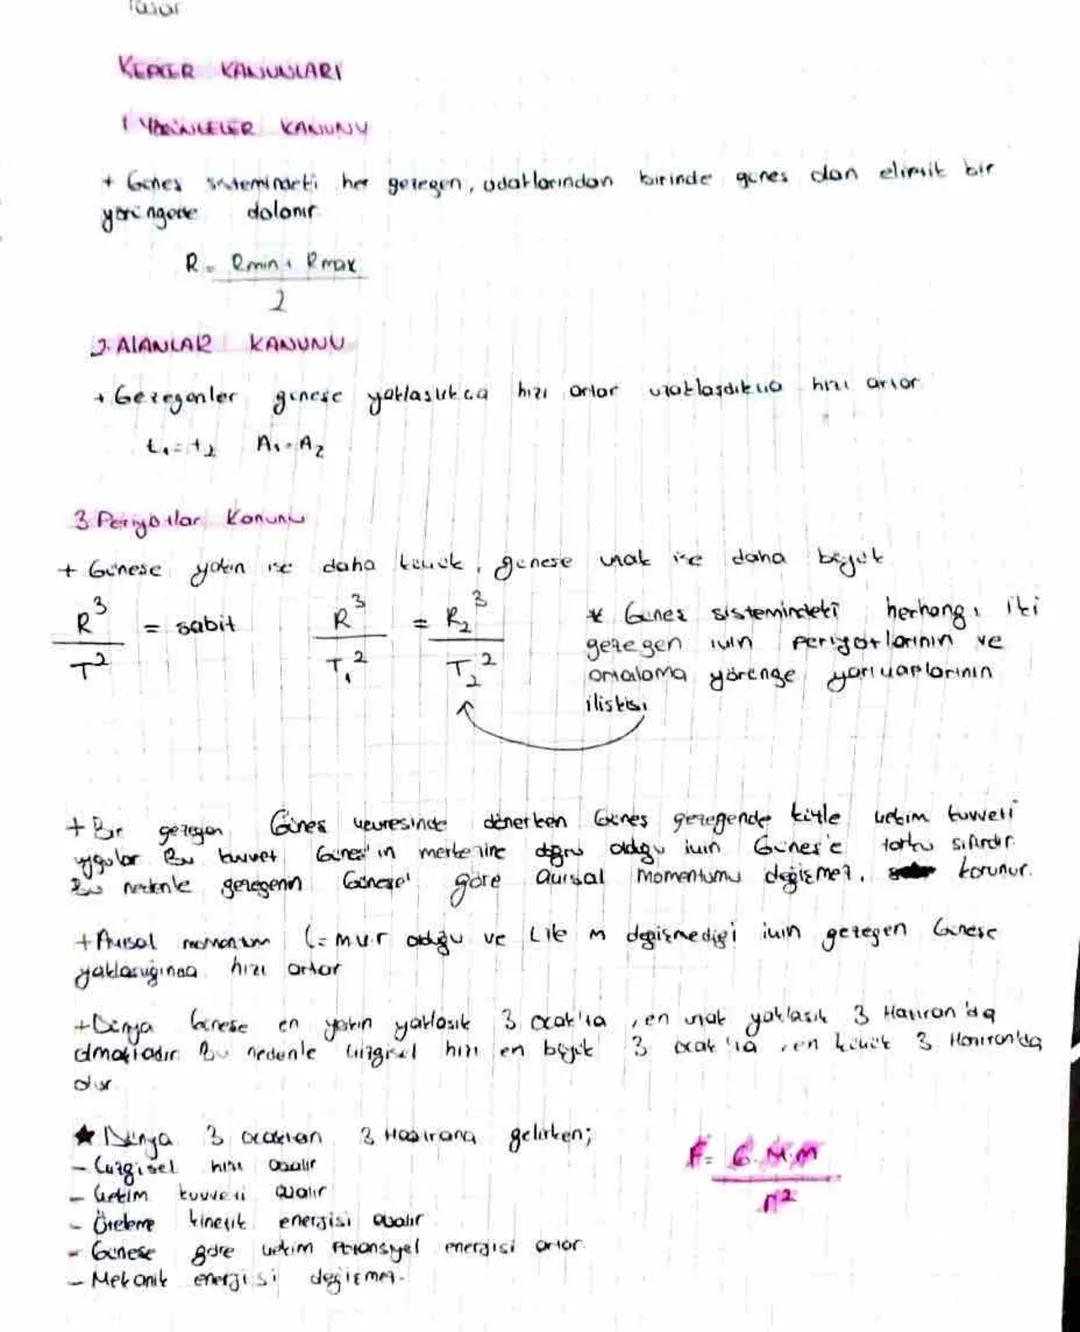 KEPLER KANUNLARI
1 YÖRÜNGELER KANUNU
+ Güneş sistemindeki her gezegen, odaklarından birinde güneş olan elipsit bir
yörüngede dolanır
R = Rmin + Rmax
2
2. ALANLAR KANUNU
+ Gezegenler güneşe yaklaştıkça hızı artar uzaklaşdıkça hızı artar
t₁ = t₂ A₁ = A₂
3 Periyotlar Kanunu
+ Güneşe yakın ise daha küçük, güneşe uzak ise daha büyük
R³ / T² = sabit R³ / T₁² = R₂³ / T₂²
* Güneş sistemindeki herhangi iki
gezegen için periyotlarının ve
ortalama yörünge yarıçaplarının
ilişkisi
+ Bir gezegen Güneş çevresinde dönerken Güneş gezegende kütle çekim kuvveti
uygular Bu kuvvet Güneş'in merkezine doğru olduğu için Güneş'e torku sıfırdır.
Bu nedenle gezegenin Güneşe göre açısal momentumu değişmez. korunur.
+ Açısal momentum L = m.v.r olduğu ve L ile m değişmediği için gezegen Güneşe
yaklaştığında hızı artar
+ Dünya Güneşe en yakın yaklaşık 3 Ocak'ta, en uzak yaklaşık 3 Haziran'da
olmaktadır. Bu nedenle çizgisel hızı en büyük 3 ocak'ta, en küçük 3 Haziran'da
dır
★ Dünya 3 ocaktan 3 Hazirana gelirken;
- Çizgisel hızı azalır
- Çekim kuvveti azalır
- Öteleme kinetik enerjisi azalır
- Güneşe göre çekim potansiyel enerjisi artar.
- Mekanik enerjisi değişmez.
F = G.M.m
r²